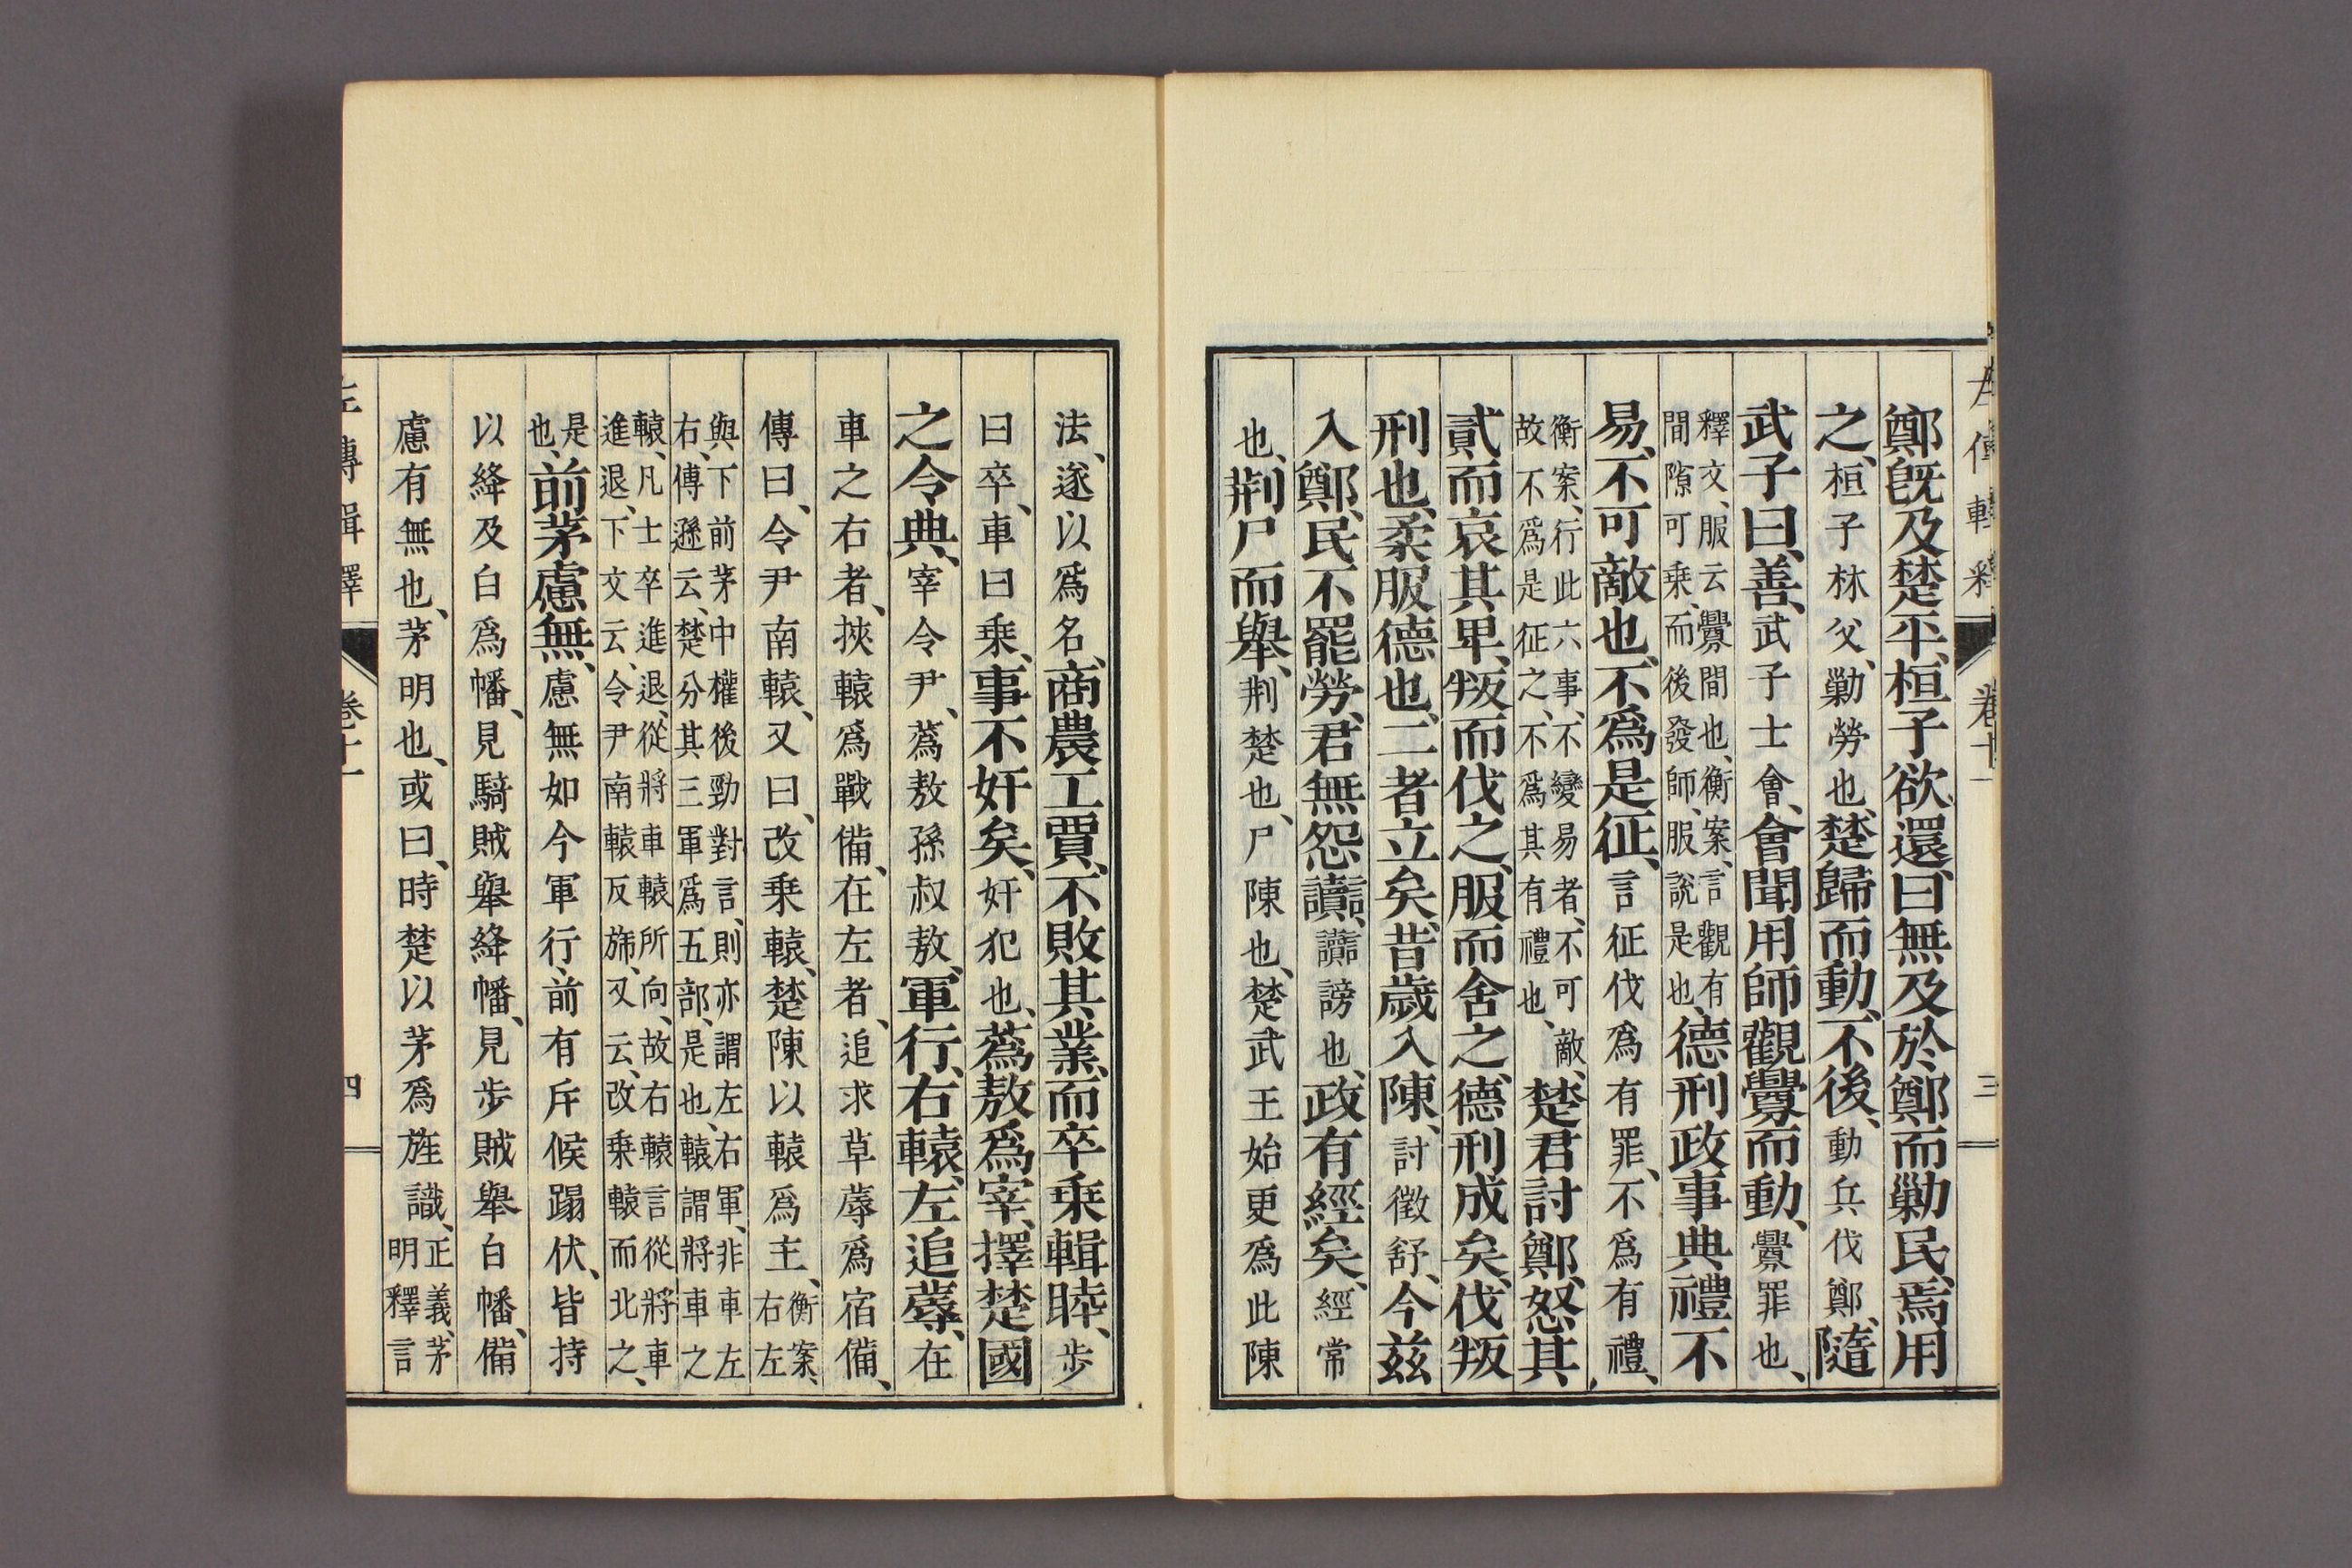 左傳輯釋 卷十一 三
鄭既及楚平、桓子欲還、曰、無及於鄭而勦民、焉用
之、桓子林父、勦勞也、楚歸而動、不後、動兵伐鄭、隨
武子曰、善、武子士會、會聞用師觀釁而動、釁罪也、
釋文、服云釁間也、衡案、言觀有
間隙可乗、而後發師、服說是也、德刑政事典禮不
易、不可敵也、不爲是征、言征伐爲有罪、不爲有禮、
衡案、行此六事、不變易者、不可敵、
故不爲是征之、不爲其有禮也、楚君討鄭、怒其
貳而哀其卑、叛而伐之、服而舍之、德刑成矣、伐叛
刑也、柔服德也、二者立矣、昔歲入陳、討徵舒、今兹
入鄭、民不罷勞、君無怨讟、讟謗也、政有經矣、經常
也、荆尸而舉、荆楚也、尸陳也、楚武王始更爲此陳
法、遂以爲名、商農工賈、不敗其業、而卒乗輯睦、步
曰卒、車曰乗、事不奸矣、奸犯也、蒍敖爲宰、擇楚國
之令典、宰令尹、蒍敖孫叔敖、軍行、右轅、左追蓐、在
車之右者、挾轅爲戰備、在左者、追求草蓐爲宿備、
傳曰、令尹南轅、又曰、改乗轅、楚陳以轅爲主、衡案、右左
與下前茅中權後勁對言、則亦謂左右軍、非車左
右、傳遜云、楚分其三軍爲五部、是也、轅謂將車之
轅、凡士卒進退、從將車轅所向、故右轅言從將車
進退、下文云、令尹南轅反旆、又云、改乗轅而北之、
是也、前茅慮無、慮無如今軍行、前有斥候蹋伏、皆持
以絳及白爲幡、見騎賊舉絳幡、見步賊舉白幡、備
慮有無也、茅明也、或曰、時楚以茅爲旌識、正義、茅
明釋言
左傳輯釋 卷十一 四